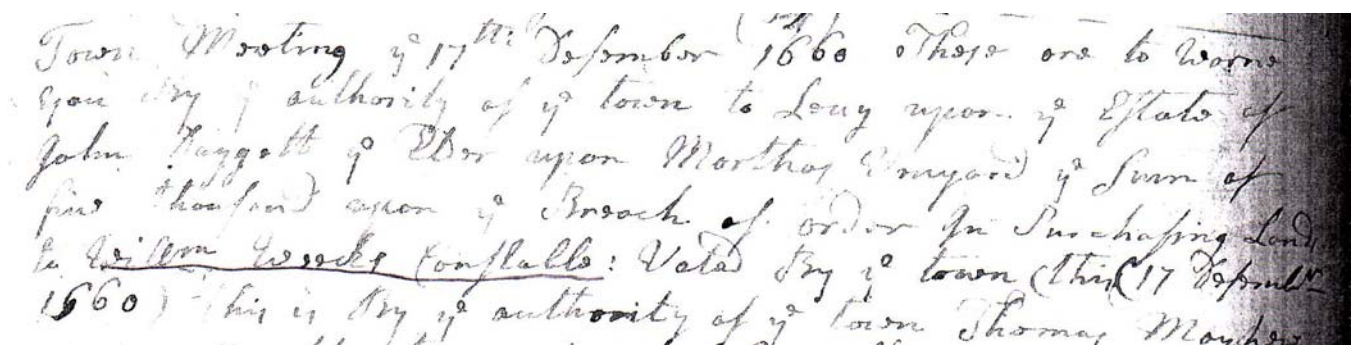 Town Meeting ye 17th: Desember 1660 These are to Warne
you By ye authority of ye town to Levy upon ye Estate of
John Daggett ye Elder upon Marthas Vinyard ye Sum of
five thousand upon ye Breach of order In Purchasing Land
to Willm Weecks Constable: Voted By ye town (this (17 Desembr
1660) This is By ye authority of ye town Thomas Mayhew